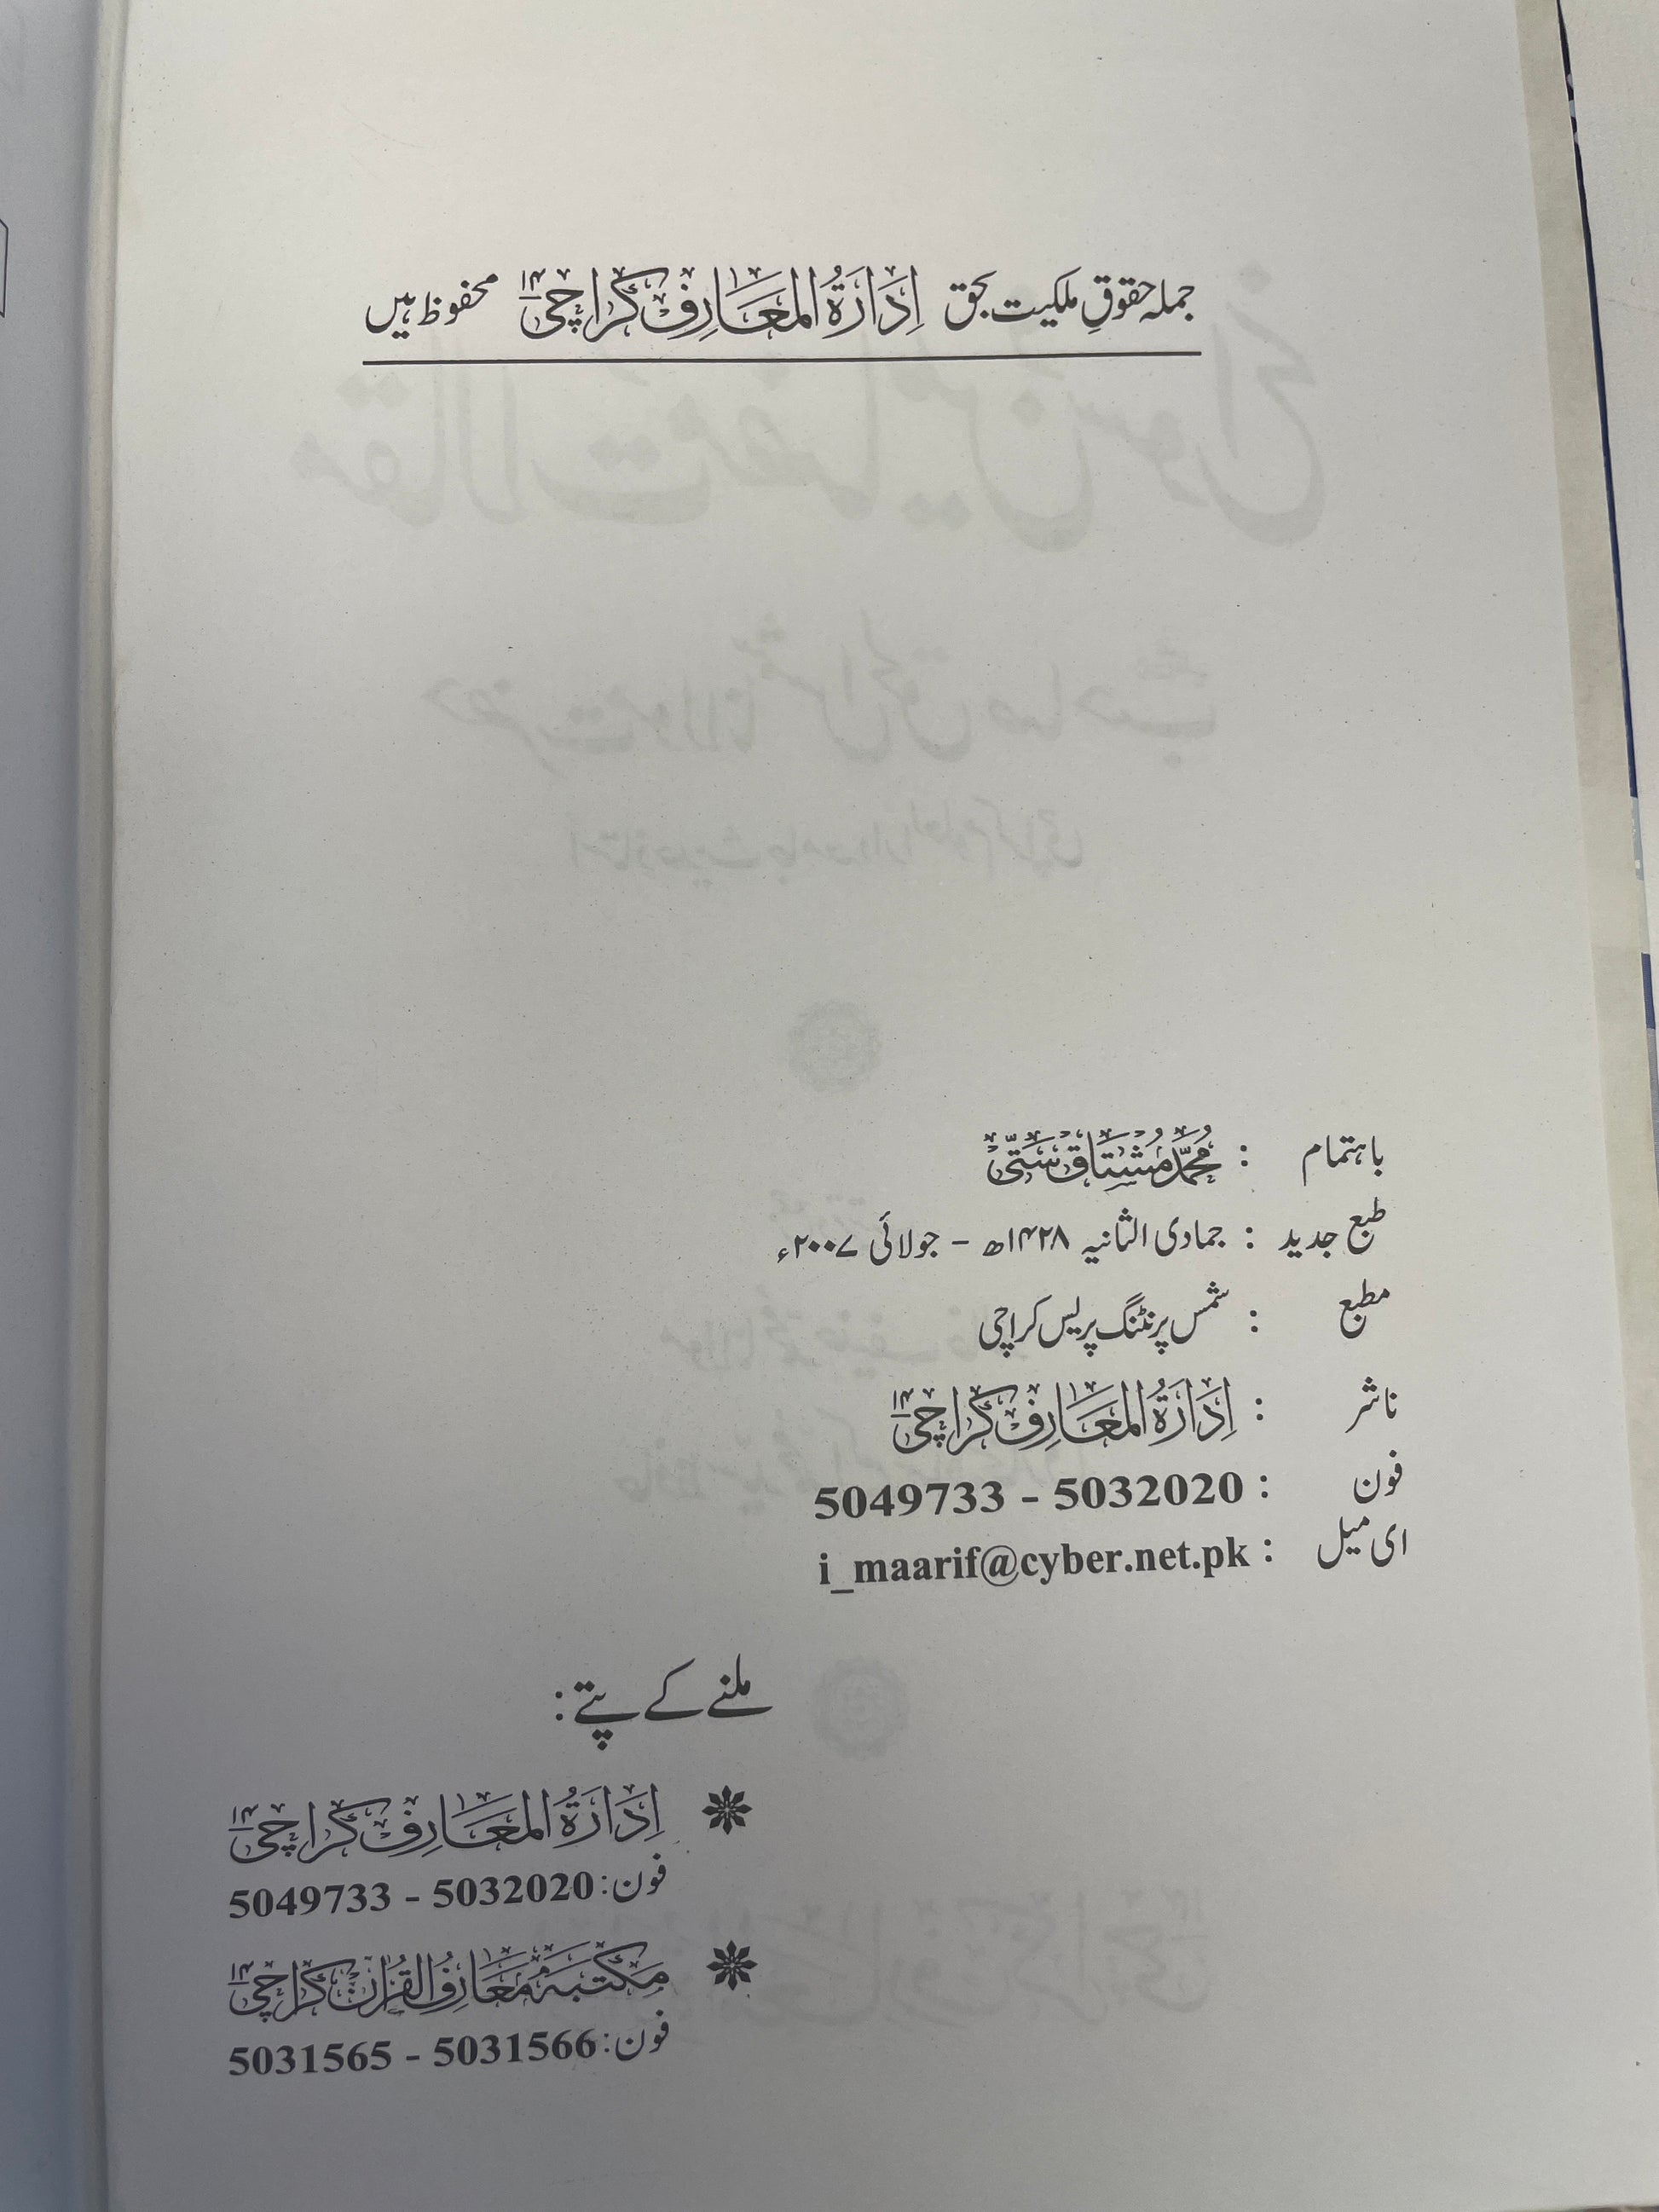 جملہ حقوقِ ملکیت بحق اِدَارَۃُ المَعَارِف کراچی ۱۴ محفوظ ہیں
باہتمام : مُحَمَّد مُشتَاق سَتّی
طبع جدید : جمادی الثانیہ ۱۴۲۸ھ - جولائی ۲۰۰۷ء
مطبع : شمس پرنٹنگ پریس کراچی
ناشر : اِدَارَۃُ المَعَارِف کراچی ۱۴
فون : 5049733 - 5032020
ای میل : i_maarif@cyber.net.pk
ملنے کے پتے:
اِدَارَۃُ المَعَارِف کراچی ۱۴
فون: 5049733 - 5032020
مکتبہ مَعَارِفُ القُرآن کراچی ۱۴
فون: 5031565 - 5031566